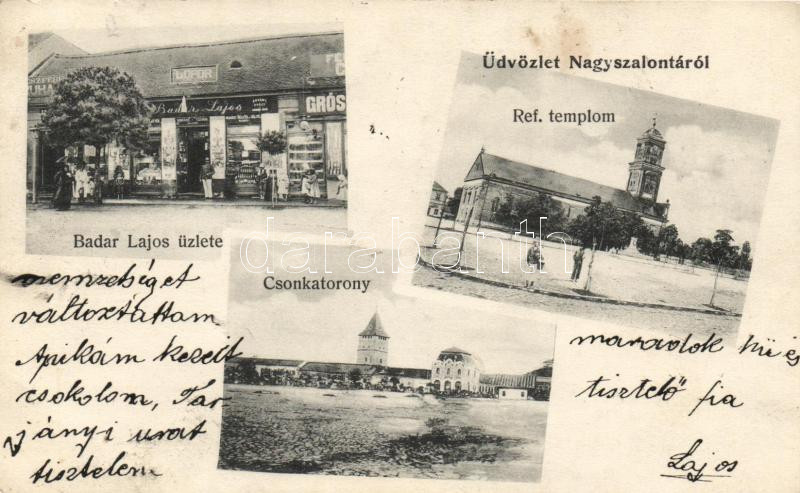 Üdvözlet Nagyszalontáról
GÓFOR
Badar Lajos
GRÓS
UHA
Badar Lajos üzlete
Ref. templom
Csonkatorony
darabanth
nemzetséget
változtattam
Apikám kezeit
csokolom, Tar
jányi urat
tisztelem
maradok hű és
tisztelő fia
Lajos